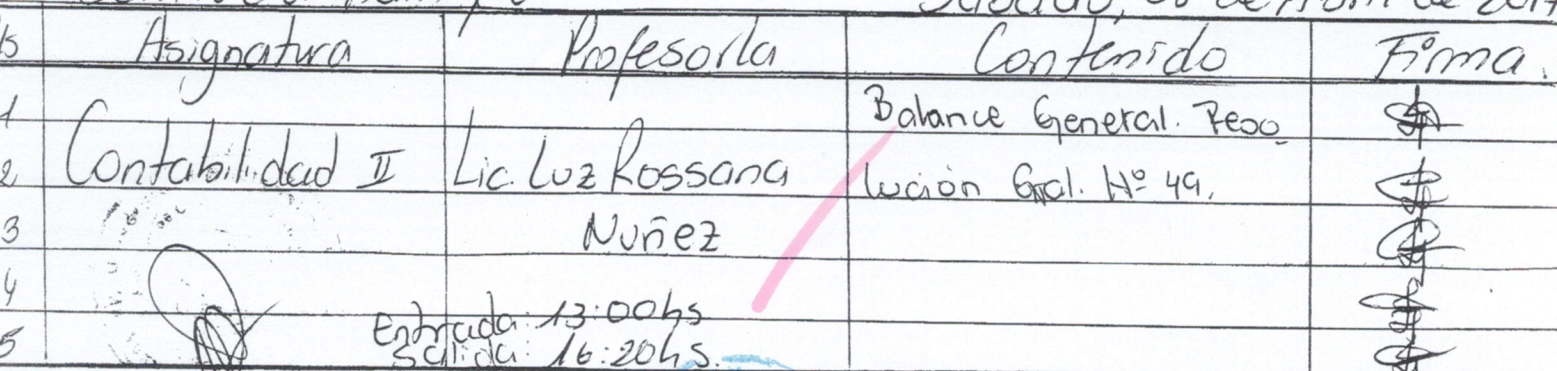 de 201
hs Asignatura Profesor/a Contenido Firma.
1 Balance General. Reso
2 Contabilidad II Lic. Luz Rossana lución Gral. Nº 49.
3 Nuñez
4 Entrada: 13:00hs
5 Salida: 16:20hs.